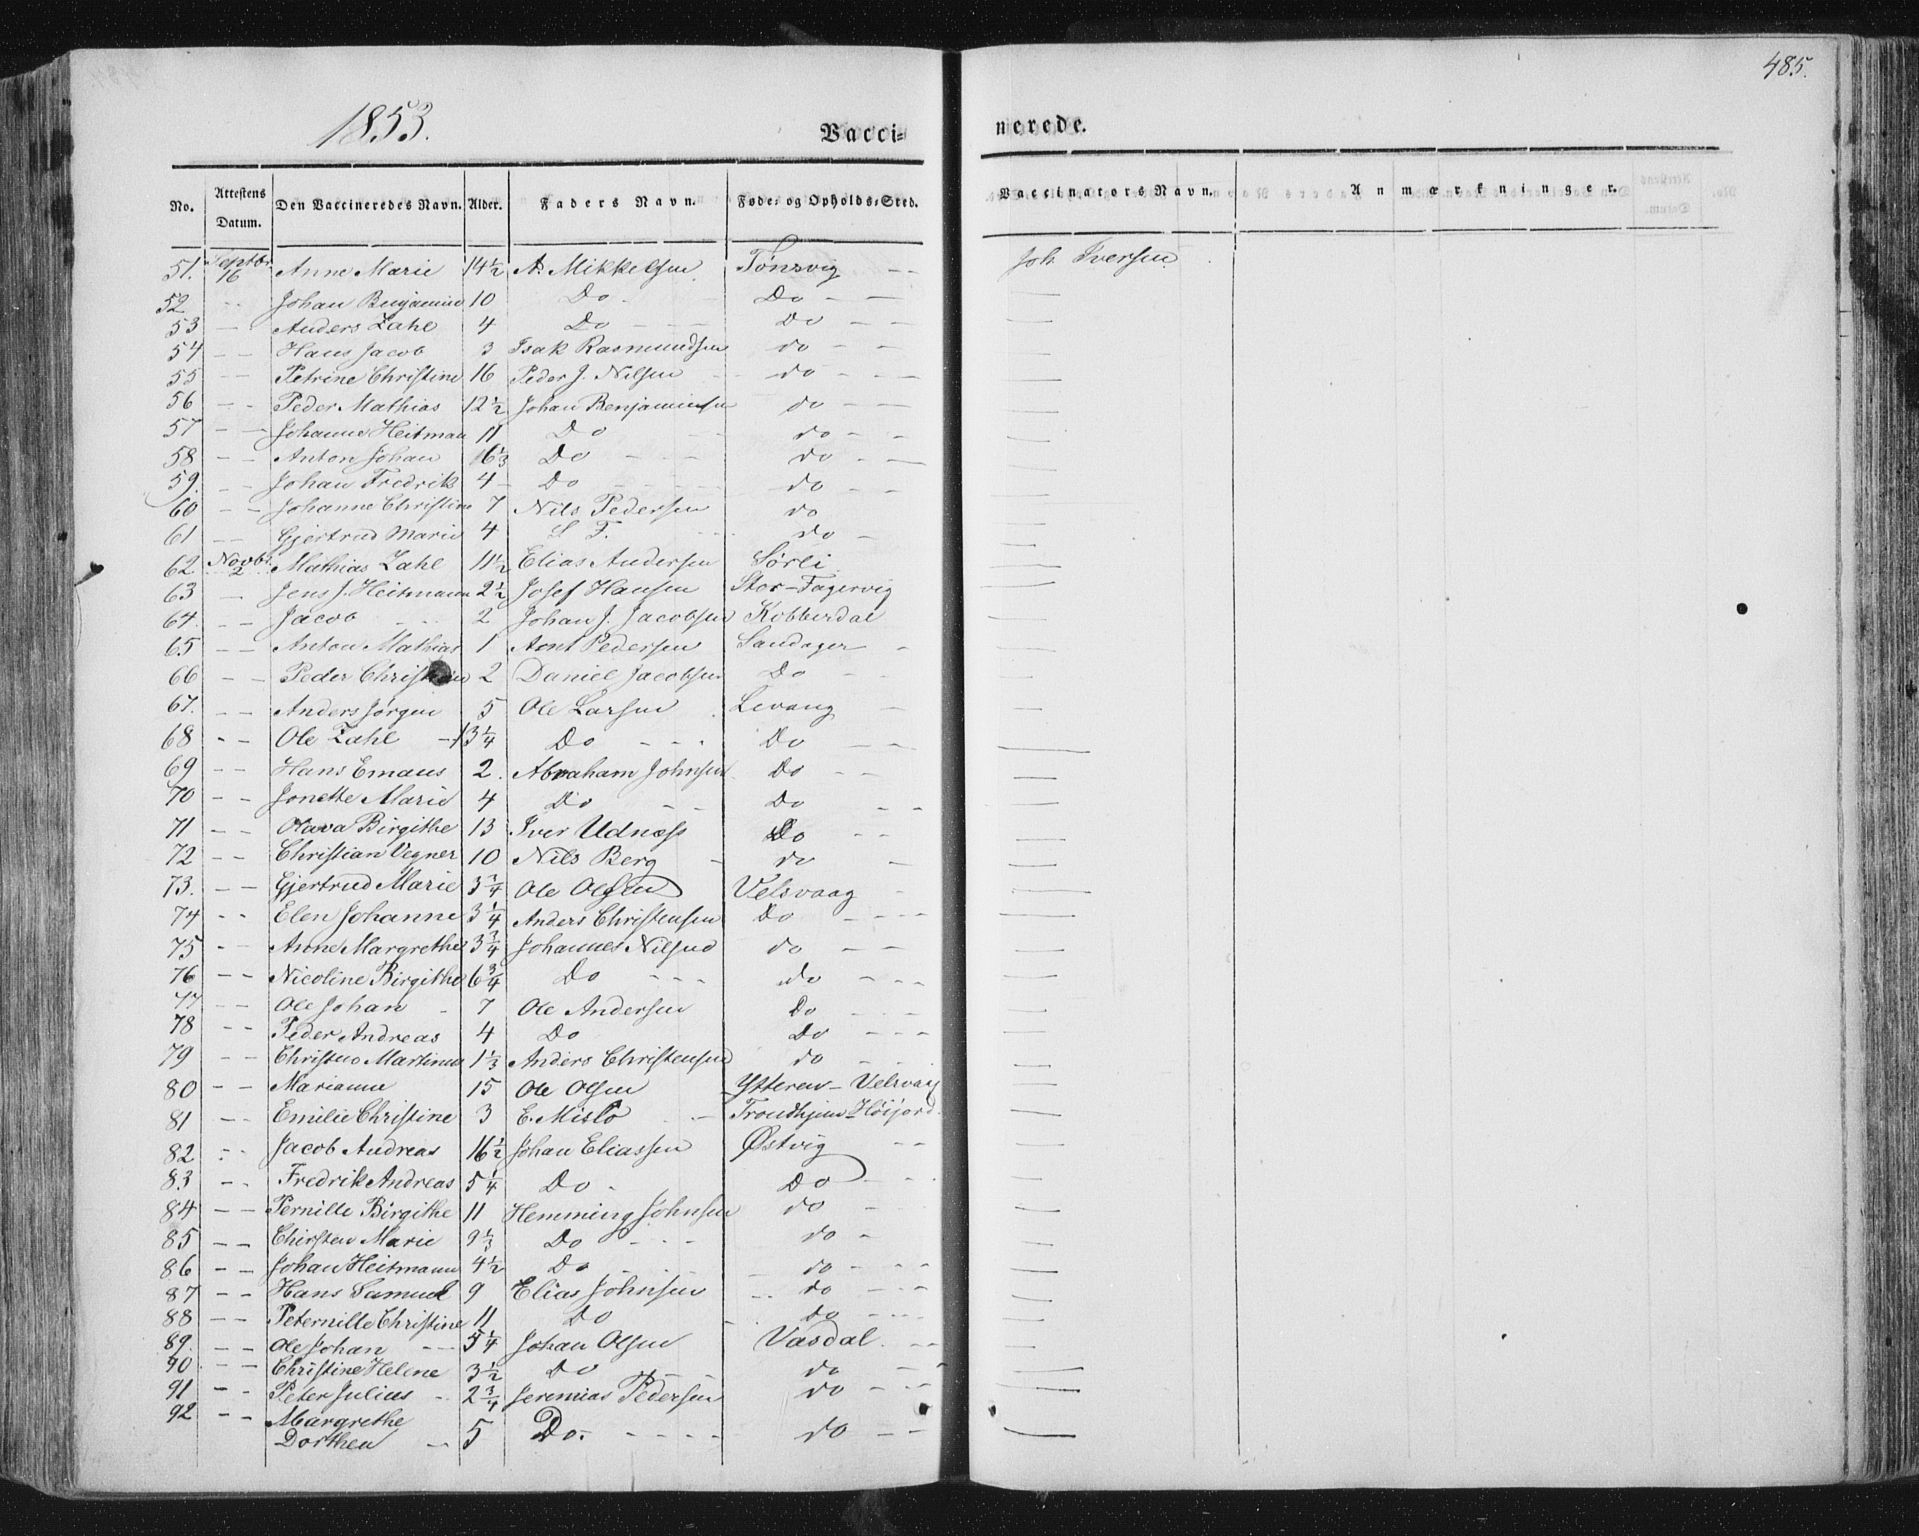 485.
1853.
Vacci-
nerede.
No. Attestens Datum. Den Vaccineredes Navn. Alder. Faders Navn. Føde- og Opholds-Sted. Vaccinators Navn. Anmærkninger.
51. Septbr 16 Anne Marie 14½ A. Mikkelsen Tønsvig - - Joh. Iversen
52 - - Johan Benjamin 10 Do - Do - - —
53 - - Anders Zahl 4 Do - - - Do - - —
54 - - Hans Jacob 3 Isak Rasmundsen do - - —
55 - - Petrine Christine 16 Peder J. Nilsen do - - —
56 - - Peder Mathias 12½ Johan Benjaminsen do - - —
57 - - Johanne Heitman 11 Do do - - —
58 - - Anton Johan 16⅓ Do - - - do - - —
59. - - Johan Fredrik 4 - Do - - - do - - —
60 - - Johanne Christine 7 Nils Pedersen do —
61 - - Gjertrud Marie 4 S F. do - —
62 Novbr 2 Mathias Zahl 11½ Elias Andersen Sørli —
63 - Jens J. Heitmann 2½ Josef Hansen Stor-Fagervig —
64. - - Jacob 2 Johan J. Jacobsen Kobberdal —
65 - - Anton Mathias 1 Arnt Pedersen Sandager - —
66 - - Peder Christian 2 Daniel Jacobsen Do - - —
67. - - Anders Jørgen 5 Ole Larsen Levang - —
68 - - Ole Zahl - 13¼ Do - - - Do - - —
69 - - Hans Emaus 2. Abraham Johnsen Do - - —
70 - - Jonette Marie 4 Do - - Do - - —
71 - - Olava Birgithe 13 Iver Udnæss Do - - —
72 - - Christian Vegner 10 Nils Berg - do - —
73. - - Gjertrud Marie 3¾ Ole Olsen Velsvaag - —
74 - - Elen Johanne 3¼ Anders Christensen Do - - - —
75 - - Anne Margrethe 3¾ Johannes Nilsen do - - —
76 - - Nicoline Birgithe 6¾ Do - - - do - - - —
77 - - Ole Johan 7 Ole Andersen Do - - —
78 - - Peder Andreas 4 Do Do - - - —
79 - - Christen Martinus 1⅓ Anders Christensen do - - —
80 - - Marianne 15 Ole Olsen Ytteren-Velsvaag —
81 - - Emilie Christine 3 E. Mislo - Trondhjem Høijord —
82 - - Jacob Andreas 16½ Johan Eliassen Østvig - - —
83 - - Fredrik Andreas 5¼ Do - Do - - - —
84 - - Pernille Birgithe 11 Hemming Johnsen do - —
85 - - Chirsten Marie 9⅓ Do - - - do - —
86 - - Johan Heitmann 4½ Do - - do - - - —
87 - - Hans Samuel 9 Elias Johnsen - - do - - - —
88 - - Peternille Christine 11 Do - do - - - —
89. - - Ole Johan - - 5¼ Johan Olsen Vasdal - - —
90 - - Christine Helene 3½ Do - do - - —
91 - - Peter Julius - 2¾ Jeremias Pedersen do - - - —
92 - - Margrethe
Dorthea - 5 Do. - - - - do - - —